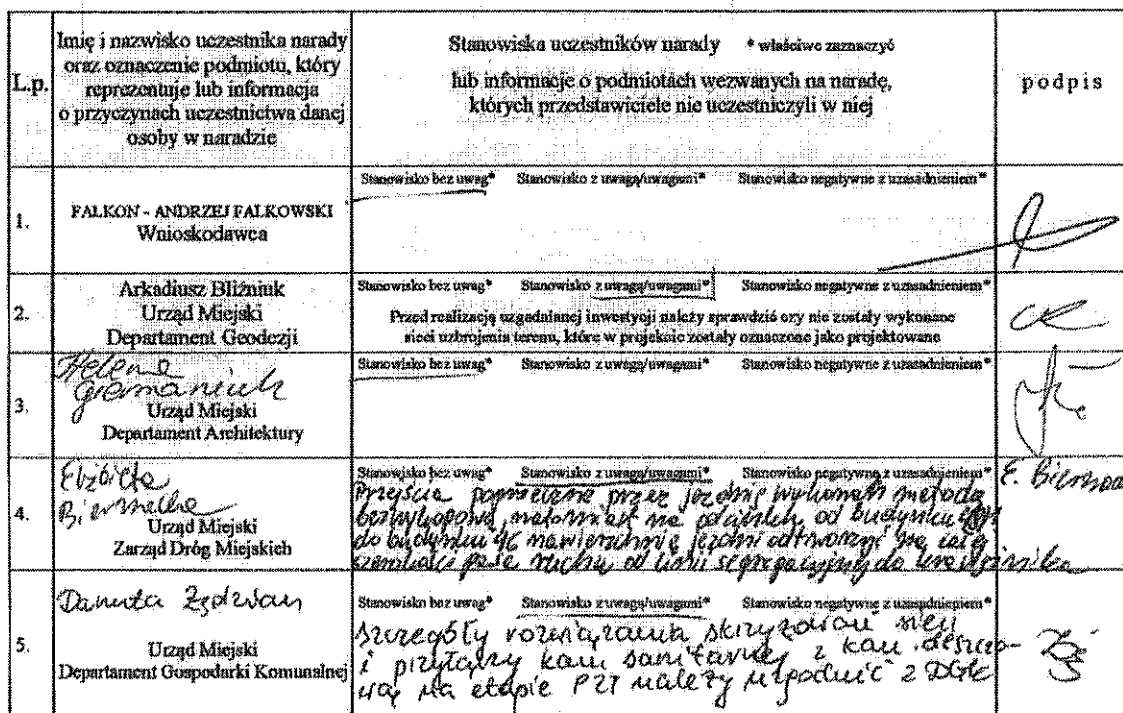 L.p.
Imię i nazwisko uczestnika narady
oraz oznaczenie podmiotu, który
reprezentuje lub informacja
o przyczynach uczestnictwa danej
osoby w naradzie
Stanowiska uczestników narady * właściwe zaznaczyć
lub informacje o podmiotach wezwanych na naradę,
których przedstawiciele nie uczestniczyli w niej
podpis
1.
FALKON - ANDRZEJ FALKOWSKI
Wnioskodawca
Stanowisko bez uwag* Stanowisko z uwagą/uwagami* Stanowisko negatywne z uzasadnieniem*
2.
Arkadiusz Bliźniuk
Urząd Miejski
Departament Geodezji
Stanowisko bez uwag* Stanowisko z uwagą/uwagami* Stanowisko negatywne z uzasadnieniem*
Przed realizacją uzgadnianej inwestycji należy sprawdzić czy nie zostały wykonane
sieci uzbrojenia terenu, które w projekcie zostały oznaczone jako projektowane
3.
Helena
Urząd Miejski
Departament Architektury
Stanowisko bez uwag* Stanowisko z uwagą/uwagami* Stanowisko negatywne z uzasadnieniem*
4.
Elżbieta
Urząd Miejski
Zarząd Dróg Miejskich
Stanowisko bez uwag* Stanowisko z uwagą/uwagami* Stanowisko negatywne z uzasadnieniem*
Przejście poprzeczne przez jezdnię wykonać metodą
bezwykopową, natomiast na odcinku od budynku
do budynku 46 nawierzchnię jezdni odtworzyć na całej
szerokości pasa ruchu od linii segregacyjnej do krawężnika
E.
5.
Danuta
Urząd Miejski
Departament Gospodarki Komunalnej
Stanowisko bez uwag* Stanowisko z uwagą/uwagami* Stanowisko negatywne z uzasadnieniem*
Szczegóły rozwiązania skrzyżowań sieci
i przyłączy kan. sanitarnej z kan. deszczo-
wą na etapie PZT należy uzgodnić z DGK